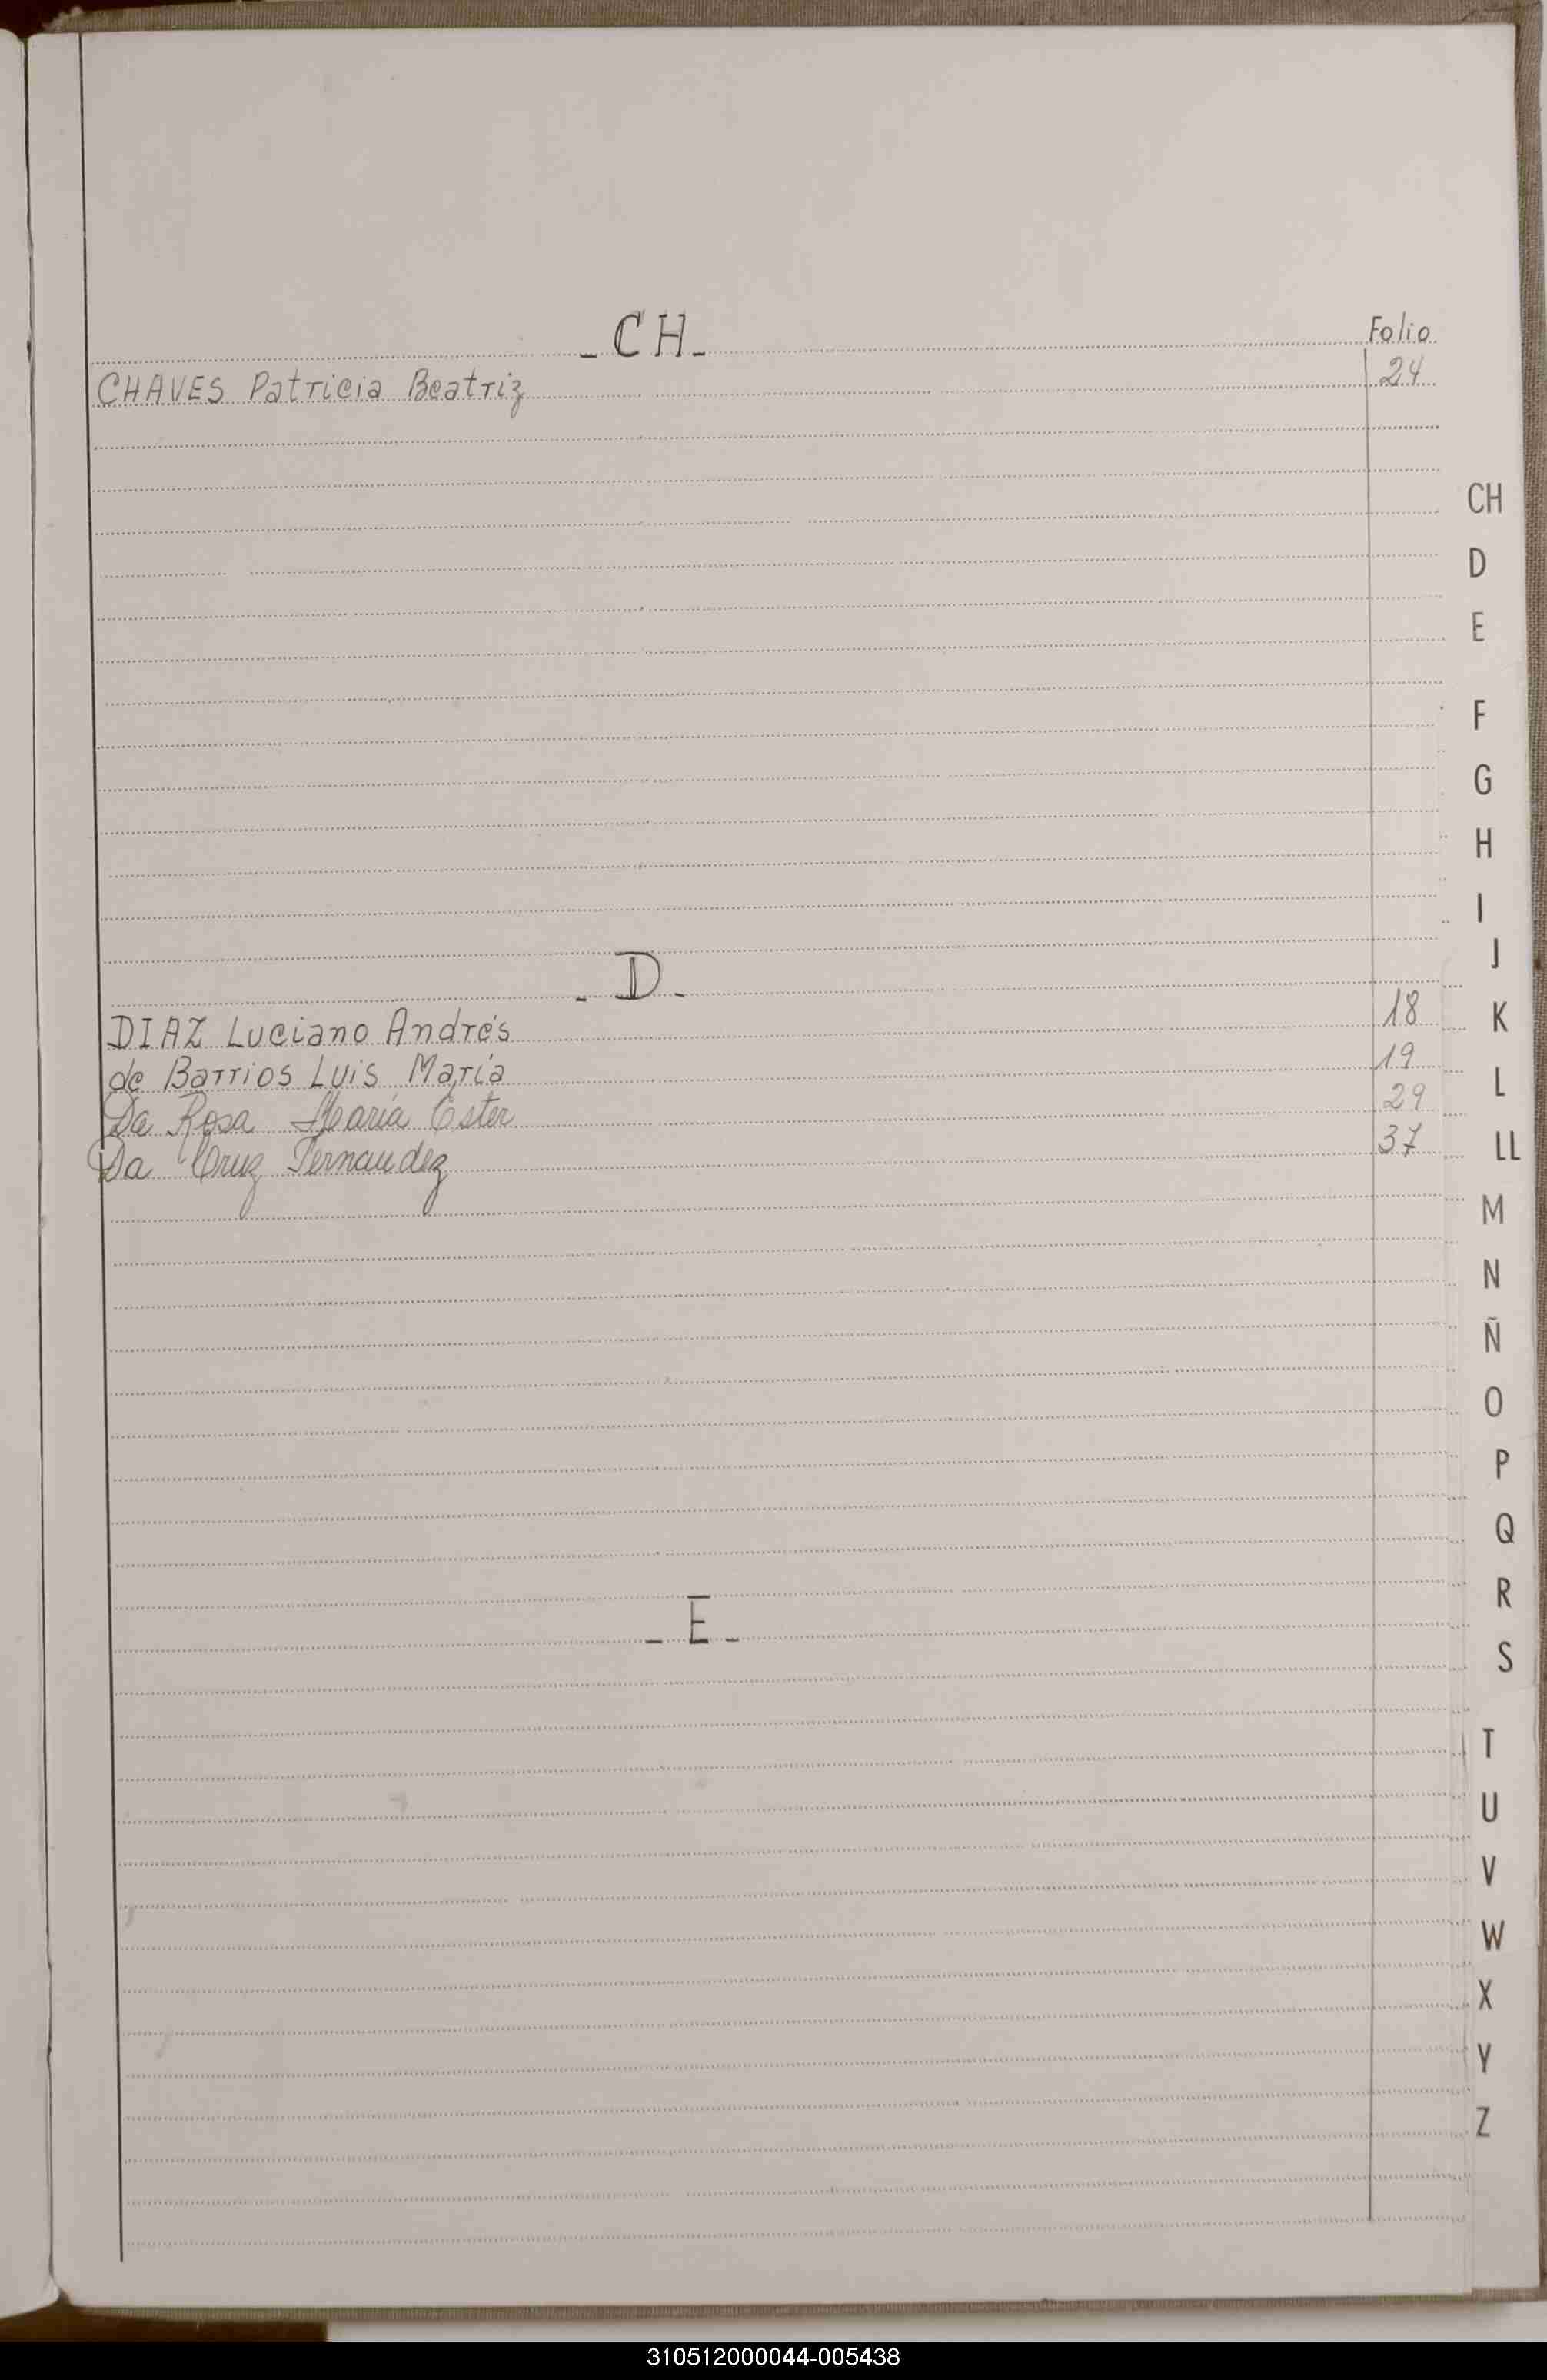 - CH -
Folio
CHAVES Patricia Beatriz 24
CH
D
E
F
G
H
I
J
K
L
LL
M
N
Ñ
O
P
Q
R
S
T
U
V
W
X
Y
Z
- D -
DIAZ Luciano Andrés 18
de Barrios Luis María 19
Da Rosa María Ester 29
Da Cruz Fernandez 37
- E -
310512000044-005438